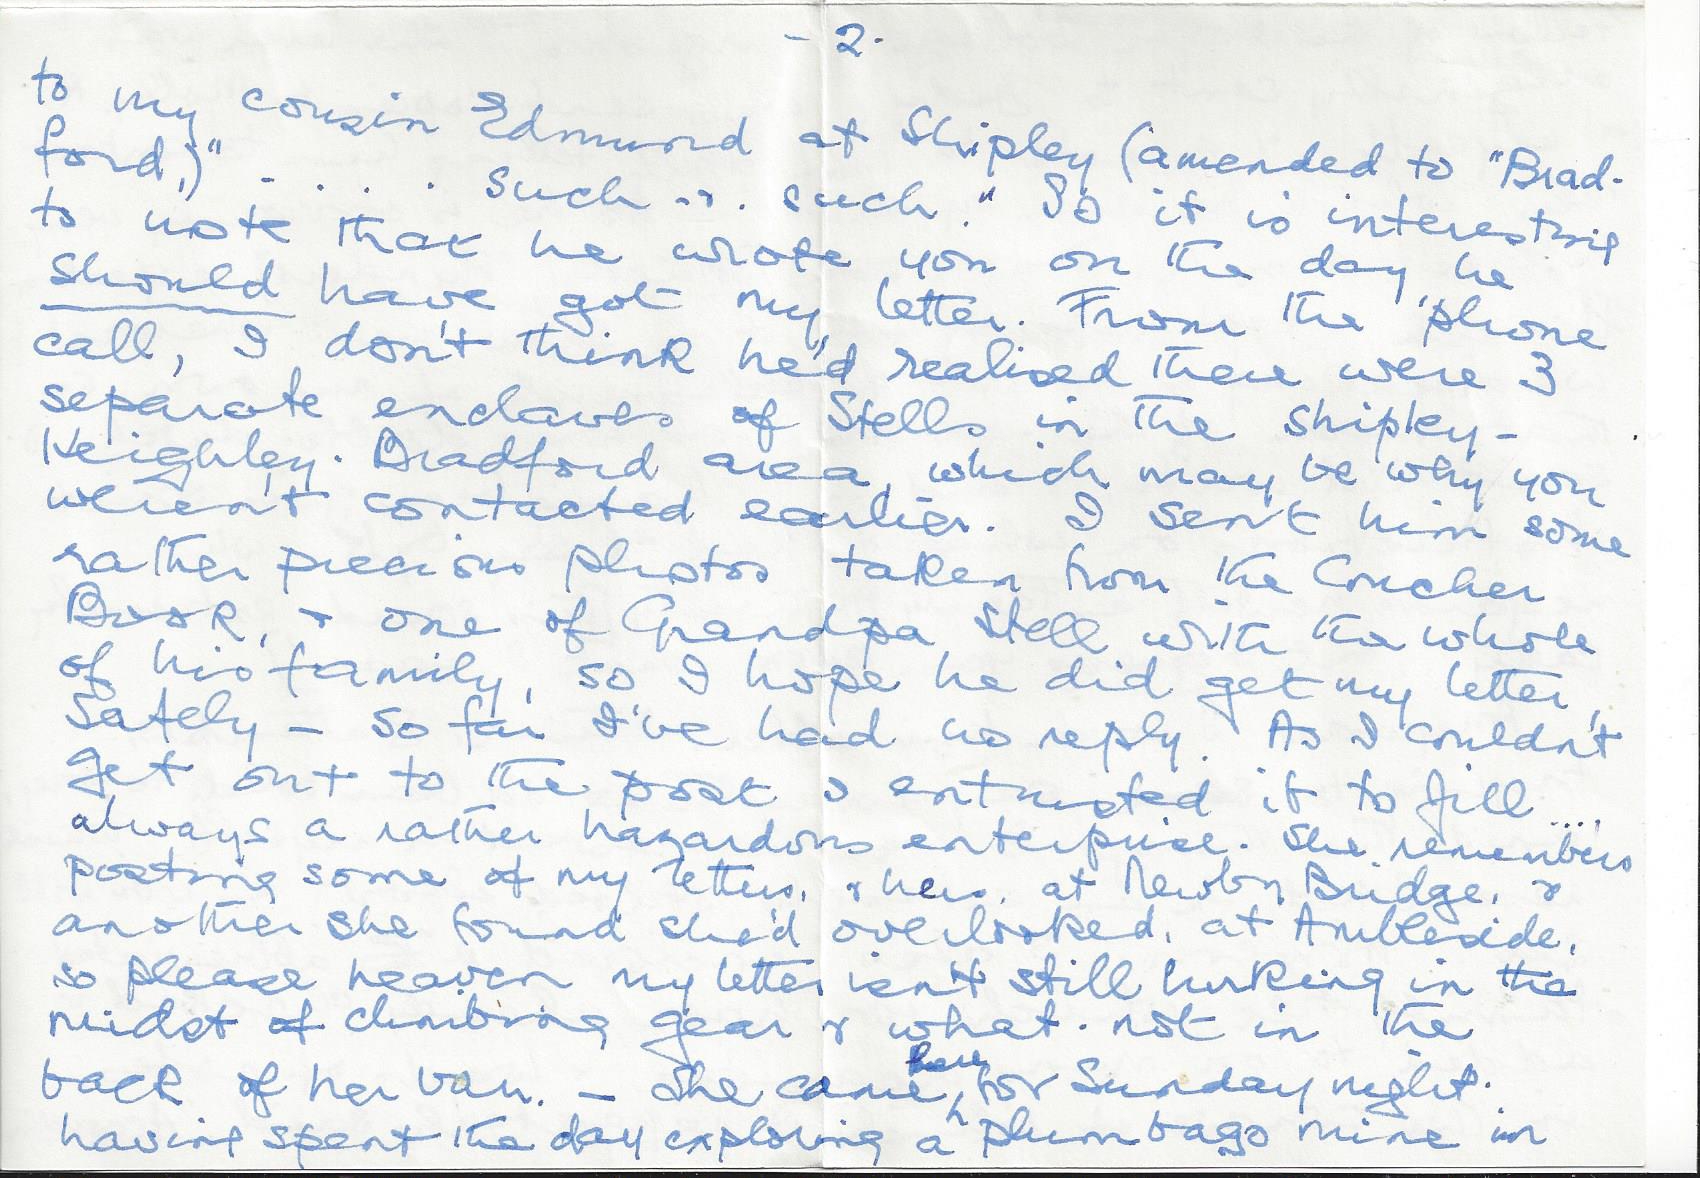 - 2.
to my cousin Edmund at Shipley (amended to "Brad-
ford,)" . . . . . such ... such." So it is interesting
to note that he wrote you on the day he
should have got my letter. From the 'phone
call, I don't think he'd realised there were 3
separate enclaves of Stells in the Shipley-
Keighley-Bradford area, which may be why you
weren't contacted earlier. I sent him some
rather precious photos taken from the Coucher
Book, & one of Grandpa Stell with the whole
of his family, so I hope he did get my letter
safely - so far I've had no reply. As I couldn't
get out to the post I entrusted it to Jill ....
always a rather hazardous enterprise. She remembers
posting some of my letters, & hers, at Newby Bridge, &
another she found she'd overlooked, at Ambleside,
so please heaven my letter isn't still lurking in the
midst of climbing gear & what-not in the
back of her van. - She came here for Sunday night
having spent the day exploring a plumbago mine in